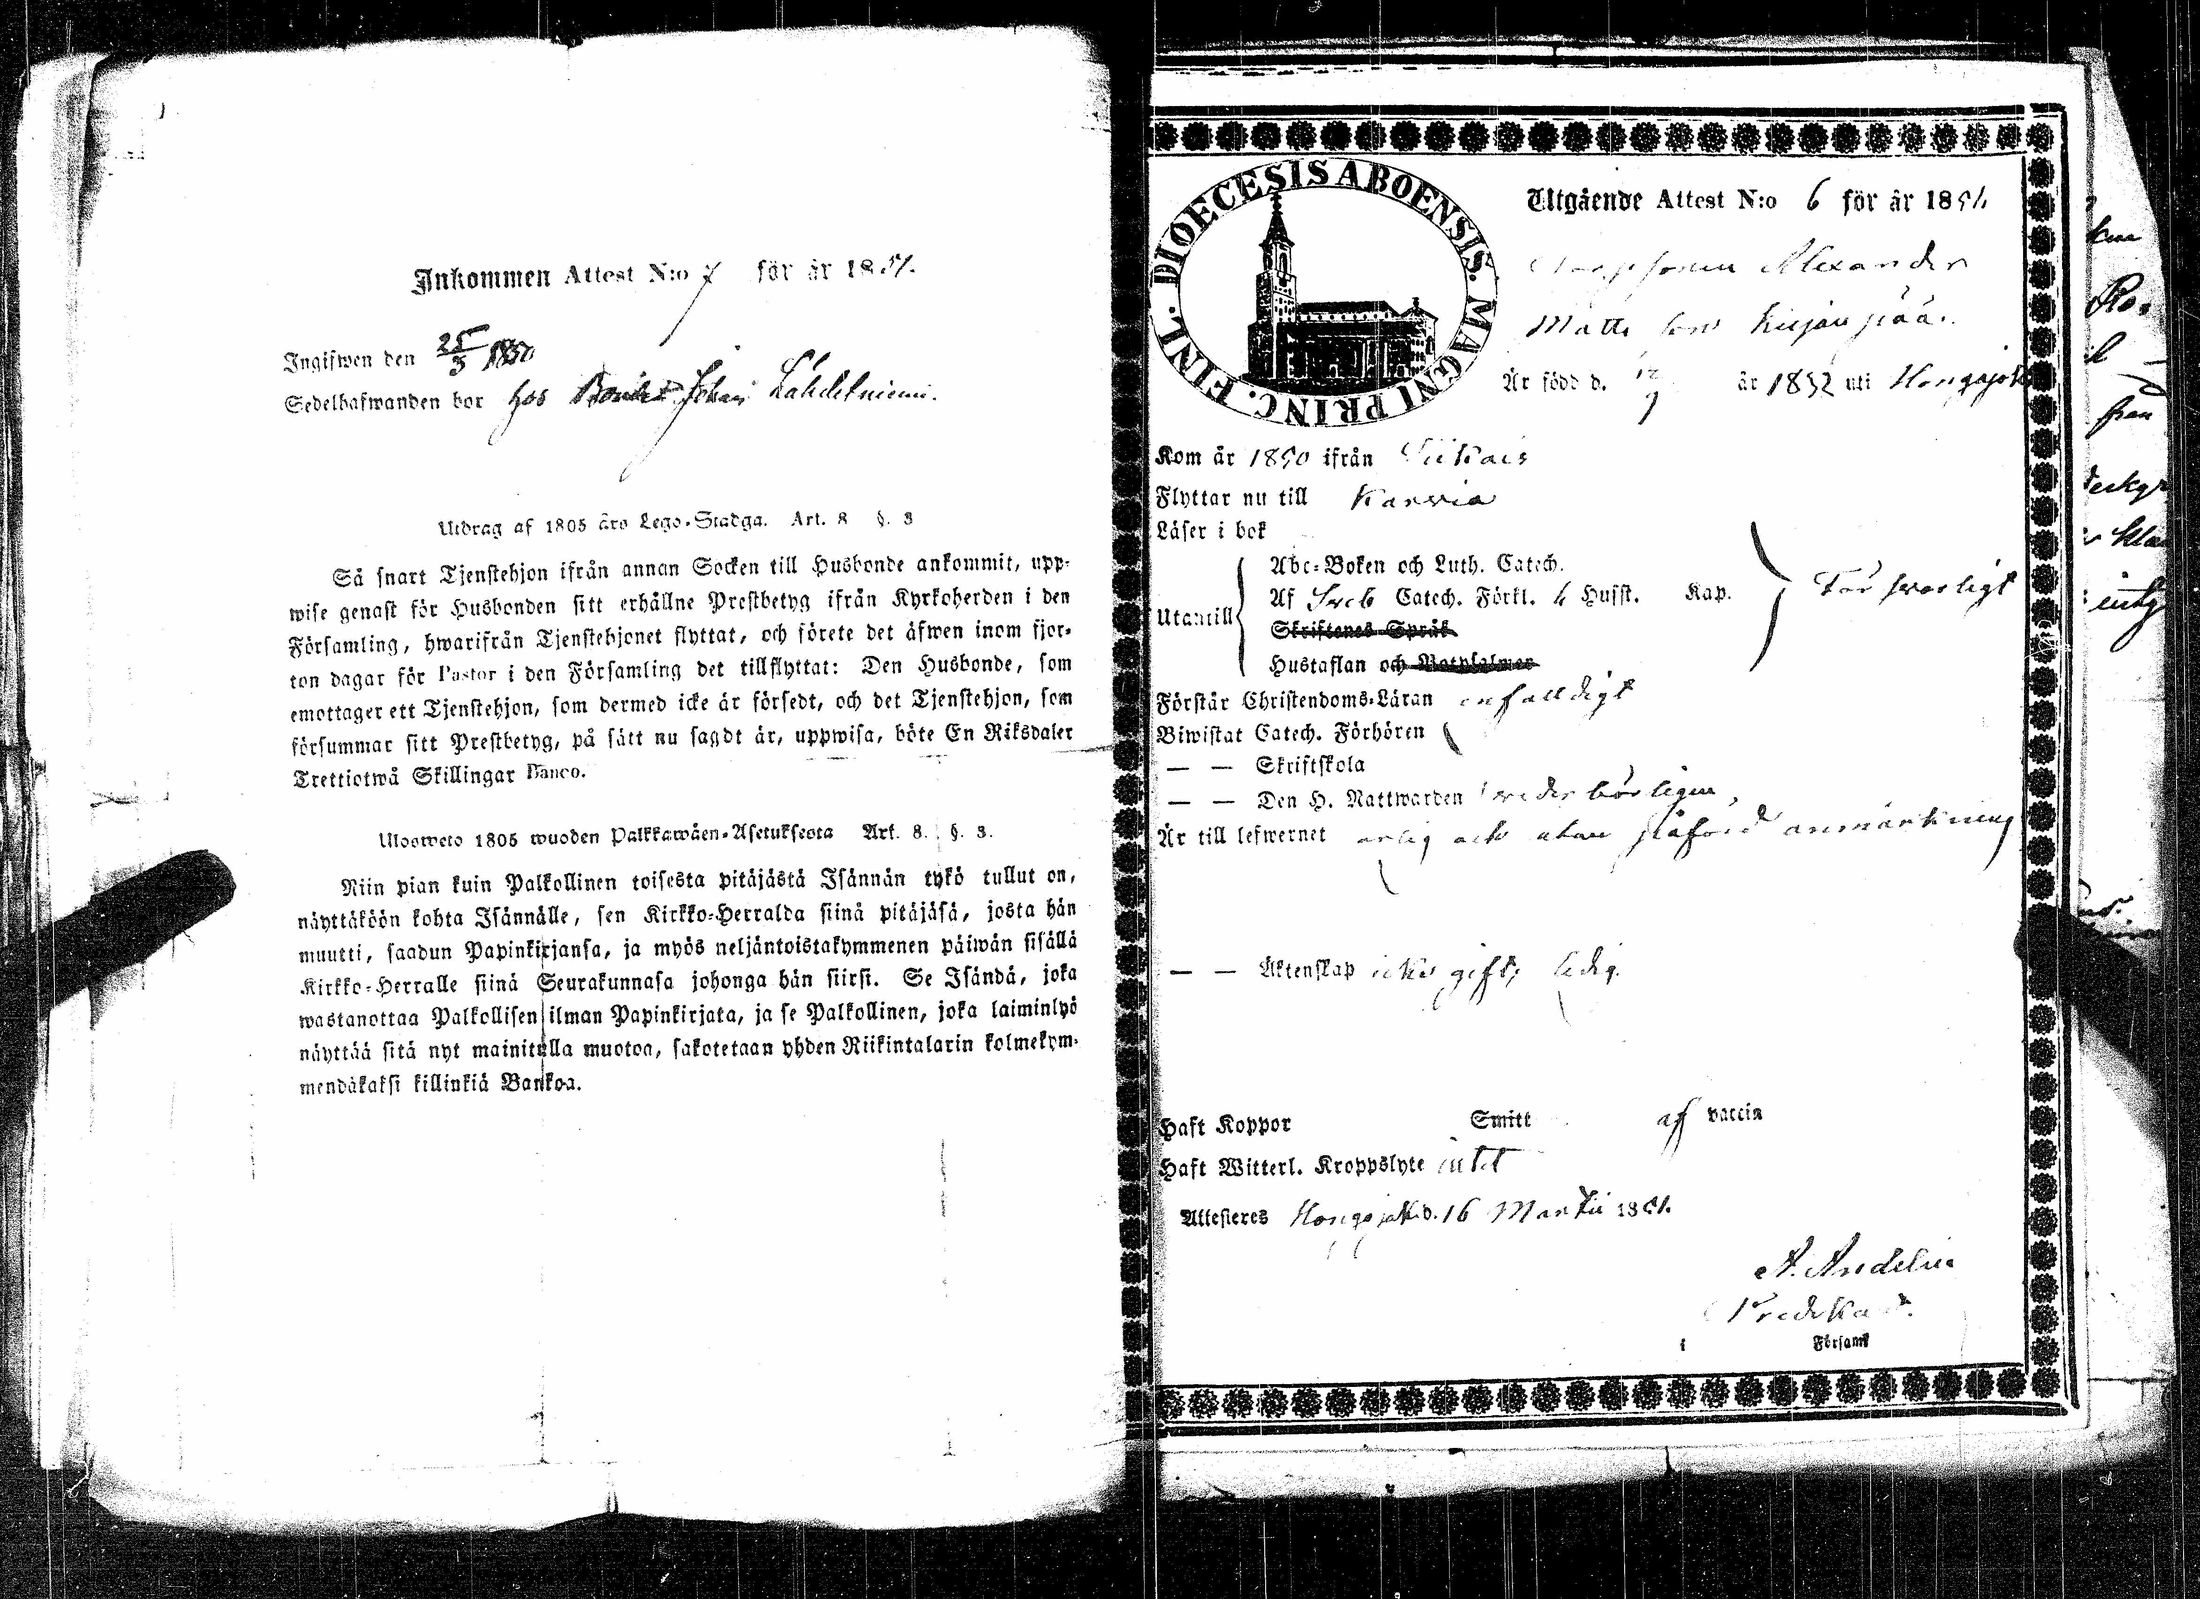 Inkommen Attest N:o 7 för år 1851.
Ingifwen den 25/3 1851
Sedelhafwanden bor hos Bonden Johan Lähdekniemi.
Utdrag af 1805 års Lego-Stadga. Art. 8 §. 3
Så snart Tjenstehjon ifrån annan Socken till Husbonde ankommit, upp-
wise genast för Husbonden sitt erhållne Prestbetyg ifrån Kyrkoherden i den
Församling, hwarifrån Tjenstehjonet flyttat, och förete det äfwen inom fjor-
ton dagar för Pastor i den Församling det tillflyttat: Den Husbonde, som
emottager ett Tjenstehjon, som dermed icke är försedt, och det Tjenstehjon, som
försummar sitt Prestbetyg, på sätt nu sagdt är, uppwisa, böte En Riksdaler
Trettiotwå Skillingar Banco.
Ulosweto 1805 wuoden Palkkawäen-Asetuksesta Art. 8. §. 3.
Niin pian kuin Palkollinen toisesta pitäjästä Isännän tykö tullut on,
näyttäköön kohta Isännälle, sen Kirkko-Herralda siinä pitäjäsä, josta hän
muutti, saadun Papinkirjansa, ja myös neljäntoistakymmenen päiwän sisällä
Kirkko-Herralle siinä Seurakunnasa johonga hän siirsi. Se Isändä, joka
wastanottaa Palkollisen ilman Papinkirjata, ja se Palkollinen, joka laiminlyö
näyttää sitä nyt mainitulla muotoa, sakotetaan yhden Riikintalarin kolmekym-
mendäkaksi killinkiä Bankoa.
DIOECESIS ABOENSIS. MAGNI PRINC. FINL.
Utgående Attest N:o 6 för år 1851
Alexander
Matts son Kirjanpää.
Är född d. 12/9 år 1832 uti Hongojoki
Kom år 1850 ifrån Siikais
Flyttar nu till Karvia
Läser i bok
Utantill
Abc-Boken och Luth. Catech.
Af Sveb Catech. Förkl. Husst. Kap. Försvarligt
Skriftenes Språk
Hustaflan och Botpsalmer
Förstår Christendoms-Läran enfalldigt
Biwistat Catech. Förhören
— — Skriftskola
— — Den H. Nattwarden vederbörligen,
Är till lefwernet ärlig och utan påförd anmärkning
— — Äktenskap icke gift, ledig.
Haft Koppor Smitt af vaccin
Haft Witterl. Kroppslyte intet
Attesteras Hongojoki d. 16 Martii 1851.
A. Andelin
Predikan.
i Församl